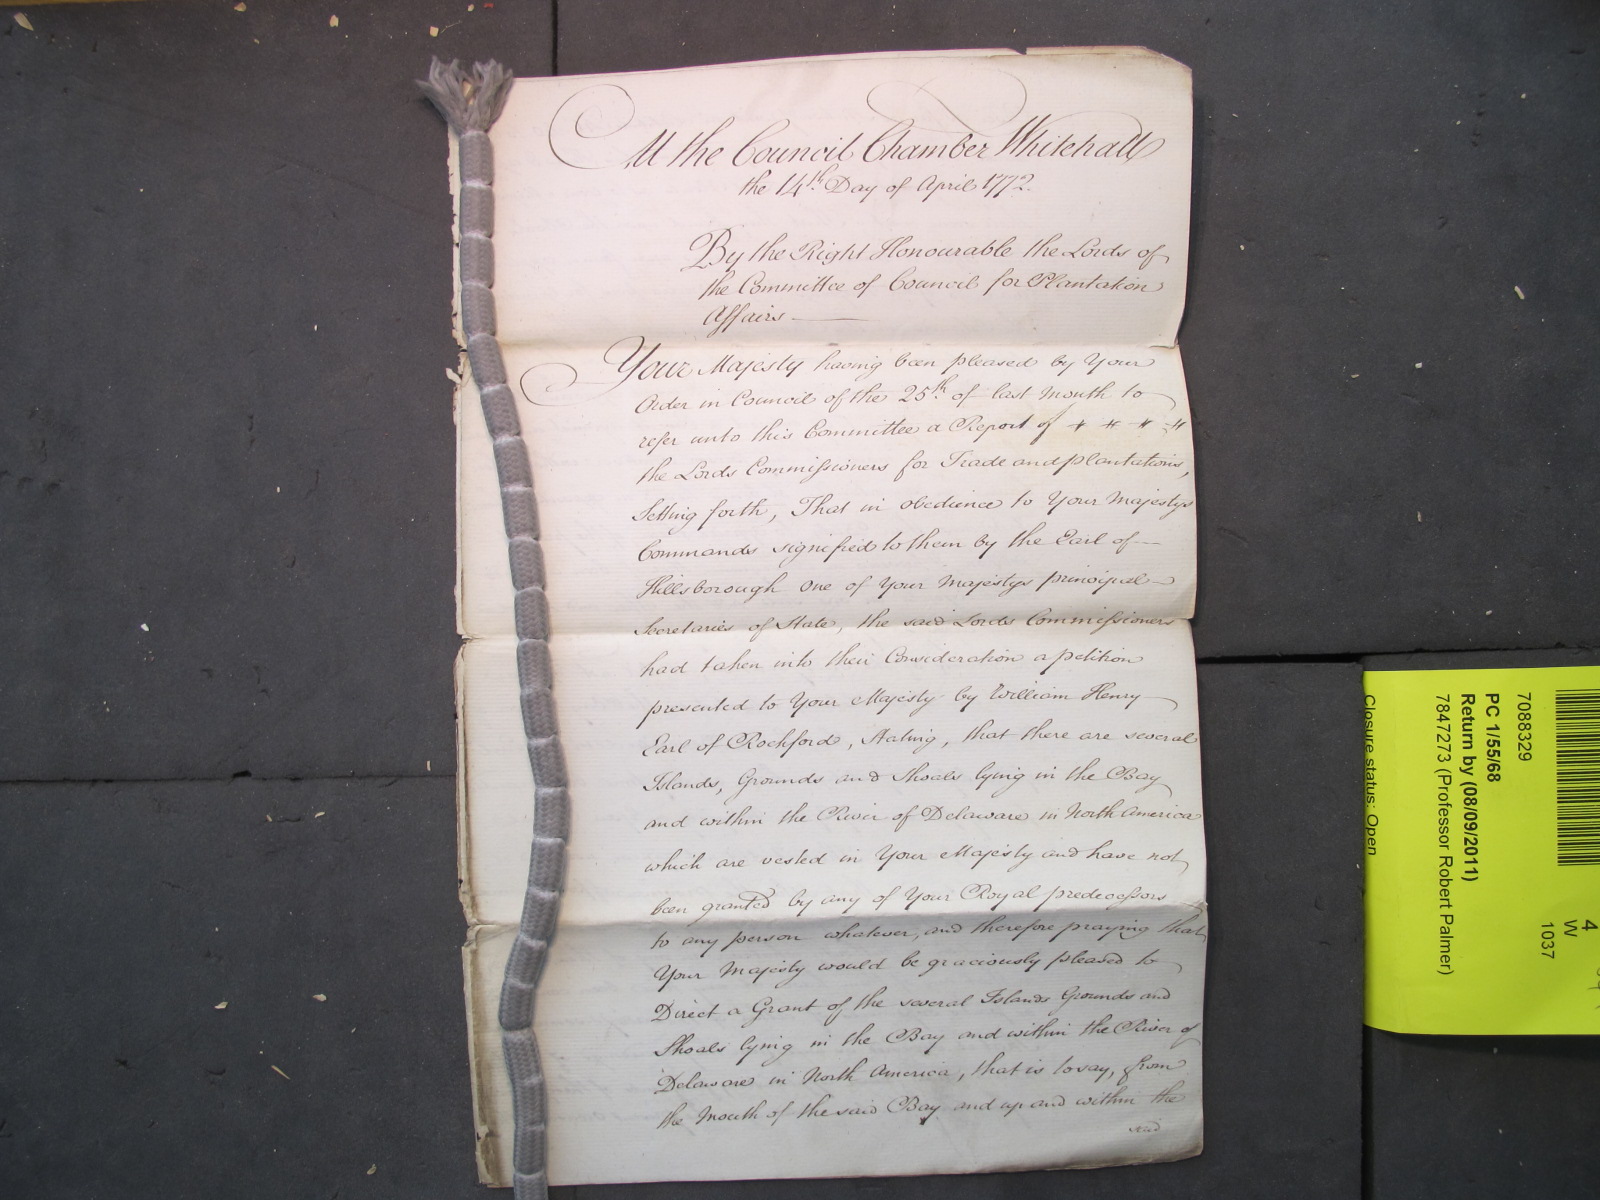 At the Council Chamber Whitehall
the 14th Day of April 1772.
By the Right Honourable the Lords of
the Committee of Council for Plantation
Affairs
Your Majesty having been pleased by Your
Order in Council of the 25th of last Month to
refer unto this Committee a Report of
the Lords Commissioners for Trade and plantations,
Setting forth, That in obedience to Your Majestys
Commands signified to them by the Earl of
Hillsborough one of Your Majestys principal
Secretaries of State, the said Lords Commissioners
had taken into their Consideration a petition
presented to Your Majesty by William Henry
Earl of Rochford, stating, that there are several
Islands, Grounds and Shoals lying in the Bay
and within the River of Delaware in North America
which are vested in Your Majesty and have not
been granted by any of Your Royal predecessors
to any person whatever, and therefore praying that
Your Majesty would be graciously pleased to
Direct a Grant of the several Islands Grounds and
Shoals lying in the Bay and within the River of
Delaware in North America, that is to say, from
the Mouth of the said Bay and up and within the
said
7088329
PC 1/55/68
Return by (08/09/2011)
7847273 (Professor Robert Palmer)
Closure status: Open
4
W
1037